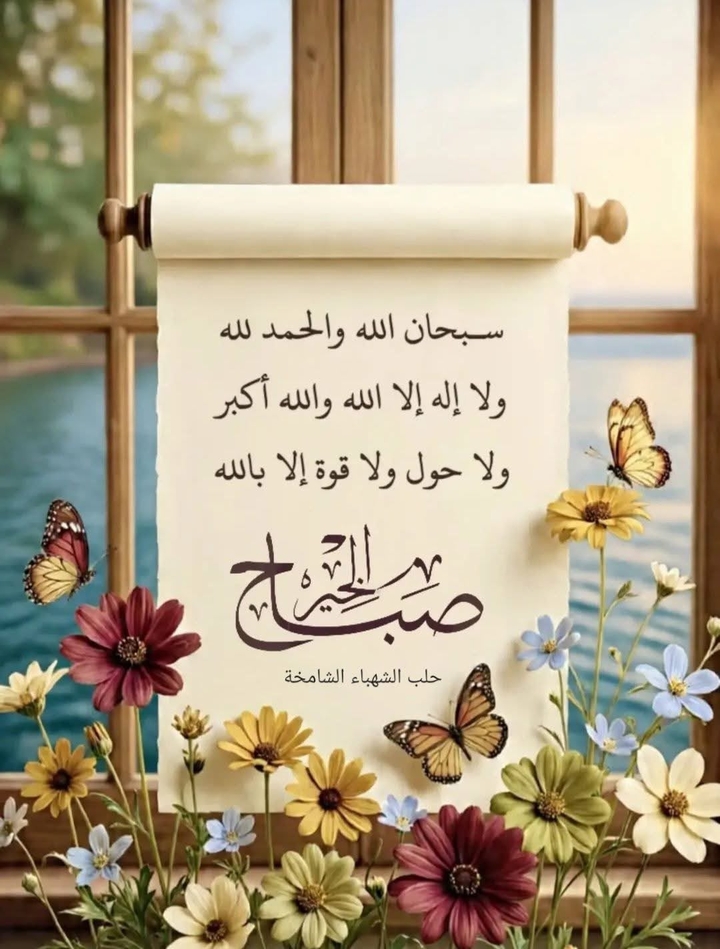 سبحان الله والحمد لله
ولا إله إلا الله والله أكبر
ولا حول ولا قوة إلا بالله
صباح الخير
حلب الشهباء الشامخة